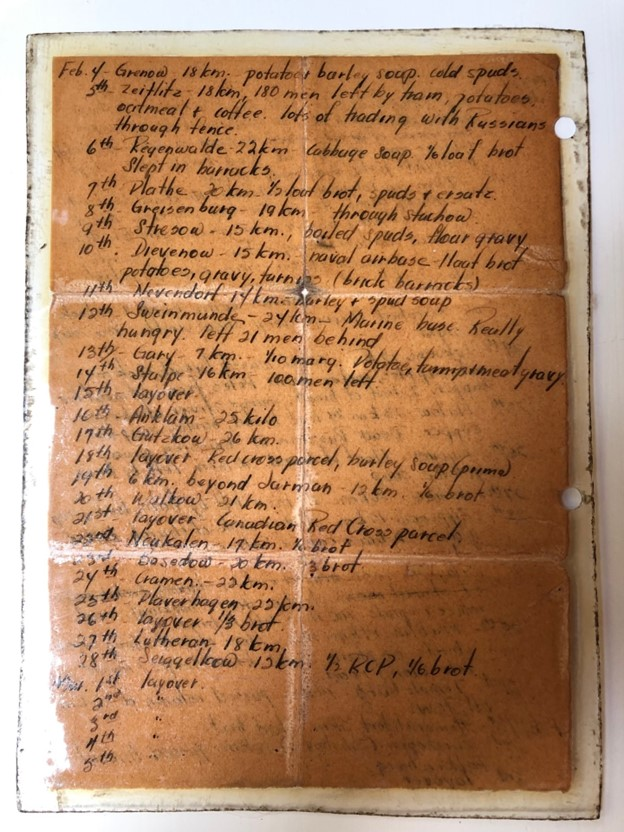 Feb. 4 - Grenow 18 km. - potatoe & barley soup. cold spuds.
5th - Zeiflitz - 18 km, 180 men left by train, potatoes,
oatmeal & coffee. lots of trading with Russians
through fence.
6th - Regenwalde - 22 km cabbage soup. 1/6 loaf brot
Slept in barracks.
7th - Plathe - 20 km - 1/2 loaf brot, spuds & ersatz.
8th - Greisenburg - 19 km through Stuchow.
9th - Stresow - 15 km., boiled spuds, flour gravy
10th - Dievenow - 15 km. naval airbase - 1 loaf brot
potatoes, gravy, turnips (brick barracks)
11th - Nevendorf 14 km - barley & spud soup
12th - Sweinmunde - 24 km - Marine base. Really
hungry. left 21 men behind
13th - Garz 7 km. 1/10 marg. Potatoe, turnip & meat gravy
14th - Stalpe - 16 km - 100 men left
15th - layover
16th - Anklam - 25 kilo
17th - Gutzkow - 26 km.
18th - layover Red cross parcel, barley soup (prima)
19th - 6 km. beyond Jarman - 12 km. 1/6 brot
20th - Walkow - 21 km.
21st - layover Canadian Red Cross parcel
22nd - Neukalen - 17 km. 1/6 brot
23rd - Basedow - 20 km. 1/3 brot
24th - Cramen. - 22 km.
25th - Plaverhagen - 22 km.
26th - layover - 1/3 brot
27th - Lutheran - 18 km
28th - 12 km. 1/2 RCP, 1/6 brot
Mar. 1st layover.
2nd "
3rd "
4th "
5th "